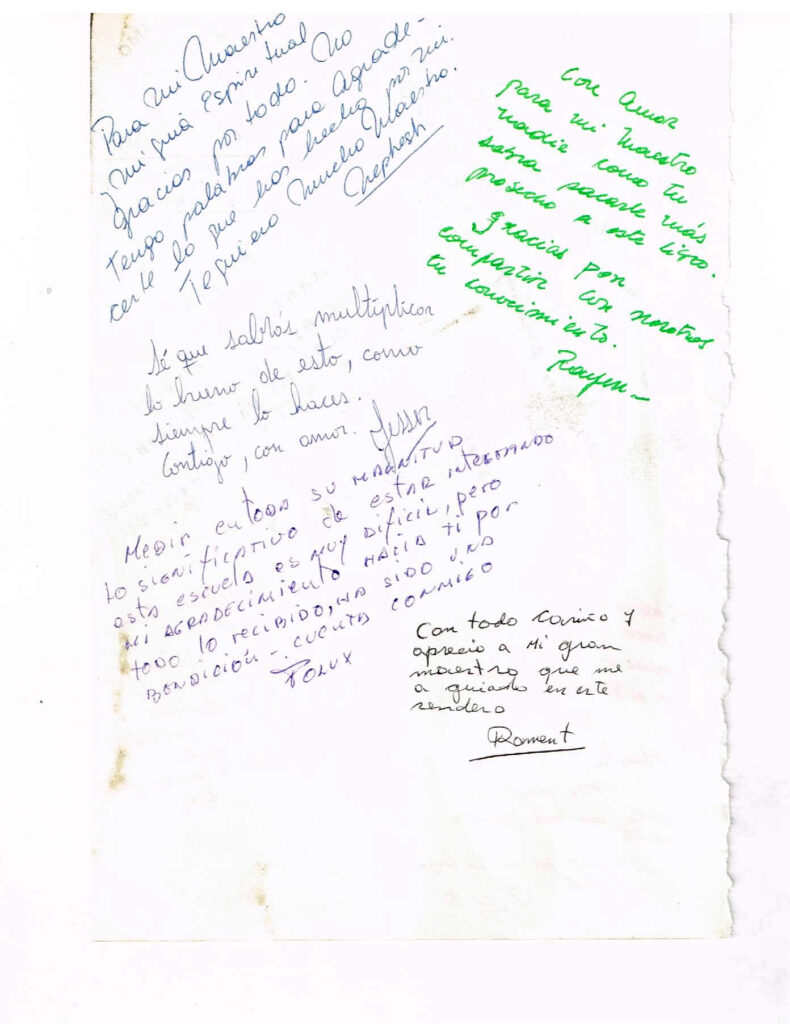 Para mi Maestro
y mi guía espiritual
gracias por todo. No
Tengo palabras para agrade-
certe lo que has hecho por mi.
Te quiero Mucho Maestro.
Nephesh
Con Amor
para mi Maestro
nadie como tu
sabra sacarle más
provecho a este libro.
Gracias por
compartir con nosotros
tu conocimiento.
Rayen
Sé que sabrás multiplicar
lo bueno de esto, como
siempre lo haces.
Contigo, con amor.
Medir en toda su magnitud
lo significativo de estar integrando
esta escuela es muy dificil, pero
mi agradecimiento hacia ti por
todo lo recibido, ha sido una
bendición - cuenta conmigo
Polux
Con todo cariño y
aprecio a Mi gran
maestro que me
a guiado en este
sendero
Roment